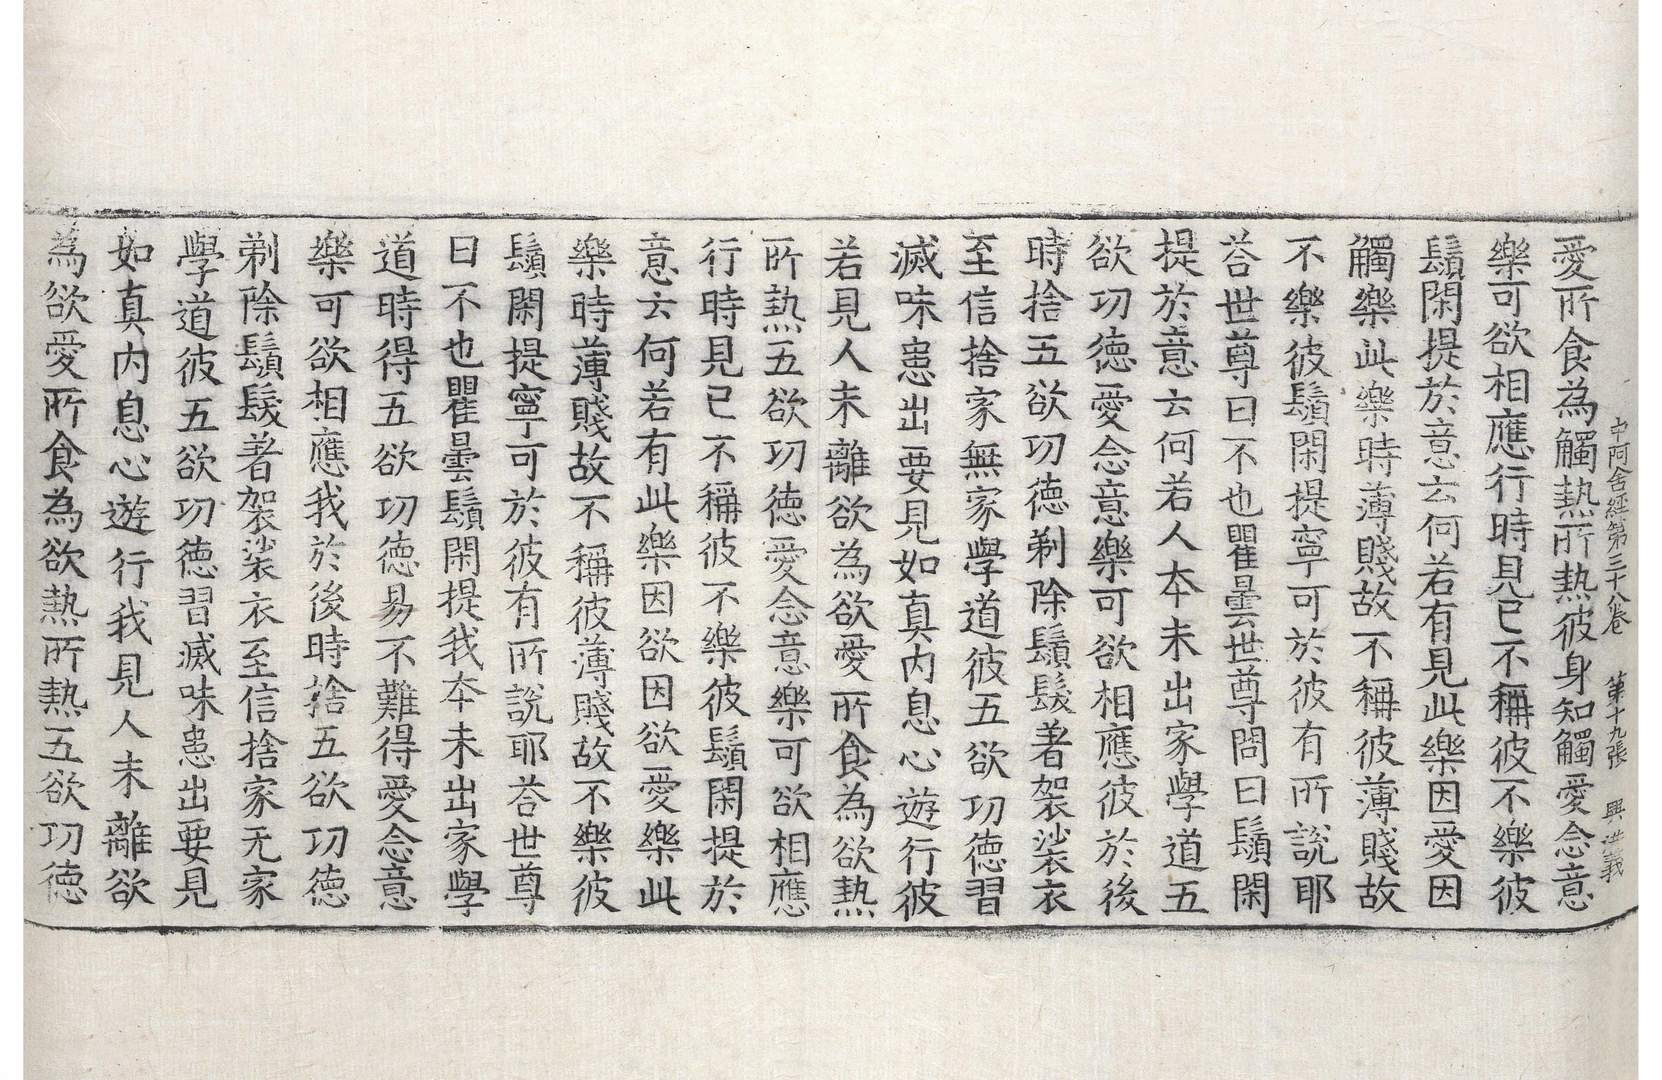 中阿含經第三十八卷 第十九張 興 洪義
愛所食為觸熱所熱彼身知觸愛念意
樂可欲相應行時見已不稱彼不樂彼
鬚閑提於意云何若有見此樂因愛因
觸樂此樂時薄賤故不稱彼薄賤故
不樂彼鬚閑提寧可於彼有所說耶
荅世尊曰不也瞿曇世尊問曰鬚閑
提於意云何若人夲未出家學道五
欲功徳愛念意樂可欲相應彼於後
時捨五欲功徳剃除鬚髮著袈裟衣
至信捨家無家學道彼五欲功徳習
滅味患出要見如真内息心遊行彼
若見人未離欲為欲愛所食為欲熱
所熱五欲功徳愛念意樂可欲相應
行時見已不稱彼不樂彼鬚閑提於
意云何若有此樂因欲因欲愛樂此
樂時薄賤故不稱彼薄賤故不樂彼
鬚閑提寧可於彼有所說耶荅世尊
曰不也瞿曇鬚閑提我夲未出家學
道時得五欲功徳易不難得愛念意
樂可欲相應我於後時捨五欲功徳
剃除鬚髮著袈裟衣至信捨家无家
學道彼五欲功徳習滅味患出要見
如真内息心遊行我見人未離欲
為欲愛所食為欲熱所熱五欲功徳